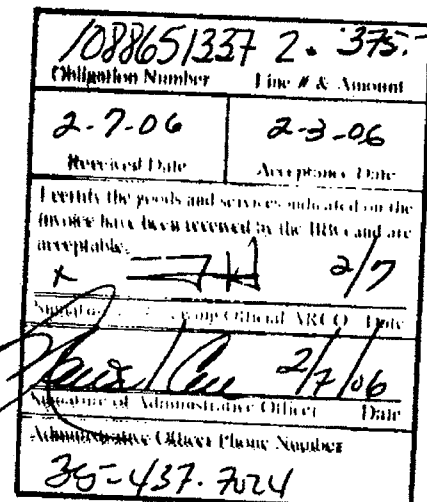 1088651337 2. 375.-
Obligation Number Line # & Amount
2-7-06 2-3-06
Received Date Acceptance Date
I certify the goods and services indicated on the
invoice have been received by the and are
acceptable.
x 2/7
Official ARCO Date
2/7/06
Signature of Administrative Officer Date
Administrative Officer Phone Number
437-7024